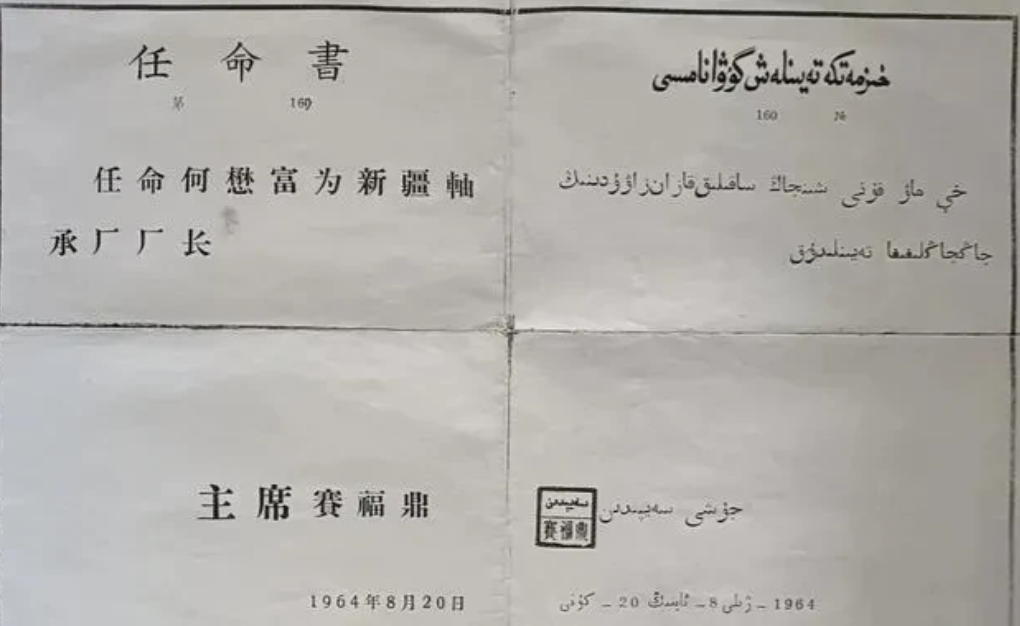 任命書
第 160
任命何懋富为新疆軸
承厂厂长
主席 賽福鼎
1964年8月20日
خىزمەتكە تەيىنلەش گۇۋانامىسى
160 №
خې ماۋ فۇنى شىنجاڭ
تەيىنلىدۇق
جۇشى سەيپىدىن
سەيپىدىن
賽福鼎
1964 ـ ژىلى 8 ـ ئاينىڭ 20 ـ كۈنى